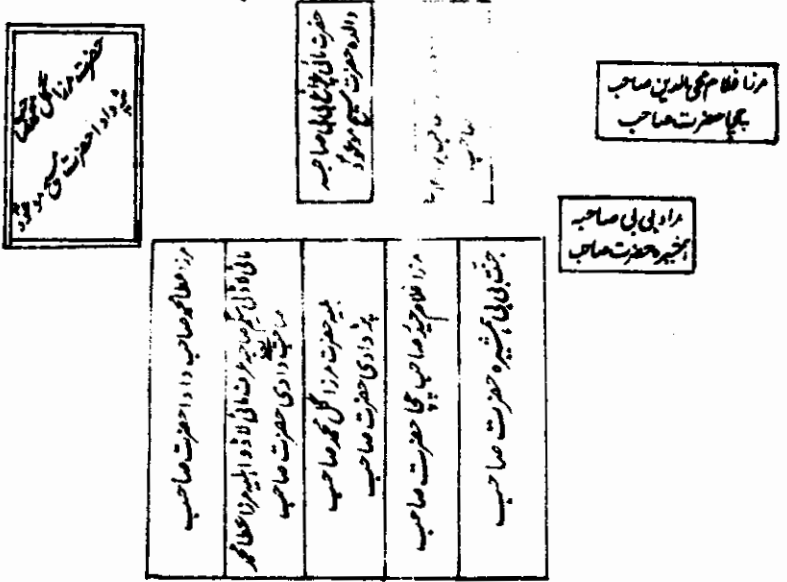 مرزا غلام محی الدین صاحب
چچا حضرت صاحب
مراد بی بی صاحبہ
ہمشیرہ حضرت صاحب
والدہ حضرت مسیح موعودؑ
حضرت مائی چراغ بی بی صاحبہ
حضرت مرزا گل محمد صاحب
پڑدادا حضرت مسیح موعودؑ
جنت بی بی ہمشیرہ حضرت صاحب
مرزا غلام حیدر صاحب چچا حضرت صاحب
اہلیہ حضرت مرزا گل محمد صاحب
پڑدادی حضرت صاحب
مائی لاڈلی بیگم صاحبہ عرف مائی لاڈو اہلیہ مرزا عطا محمد
صاحب دادی حضرت صاحب
مرزا عطا محمد صاحب دادا حضرت صاحب